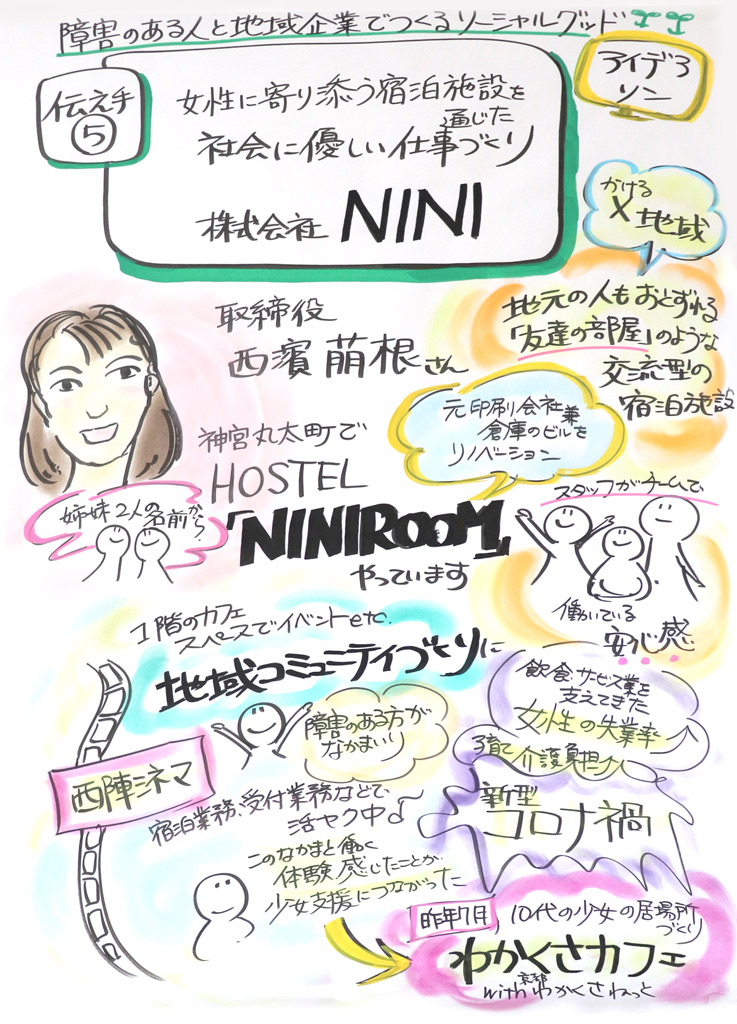 障害のある人と地域企業でつくるソーシャルグッド
アイデア
ソン
伝え手
⑤
女性に寄り添う宿泊施設を
通じた
社会に優しい仕事づくり
株式会社 NINI
かける
X 地域
取締役
西濱 萌根さん
地元の人もおとずれる
「友達の部屋」のような
交流型の
宿泊施設
元印刷会社兼
倉庫のビルを
リノベーション
神宮丸太町で
HOSTEL
「NINIRooM」
やっています
姉妹2人の名前から!
スタッフがチームで
働いている
安心感
1階のカフェ
スペースでイベントetc.
地域コミュニティづくりに
飲食・サービス業を
支えてきた
女性の失業率
子育て
介護負担
障害のある方が
なかまいり
西陣シネマ
宿泊業務、受付業務などで
活ヤク中♪
新型
コロナ禍
このなかまと働く
体験 感じたことが
少女支援につながった
昨年7月
10代の少女の居場所
づくり
わかくさカフェ
with 京都わかくさねっと